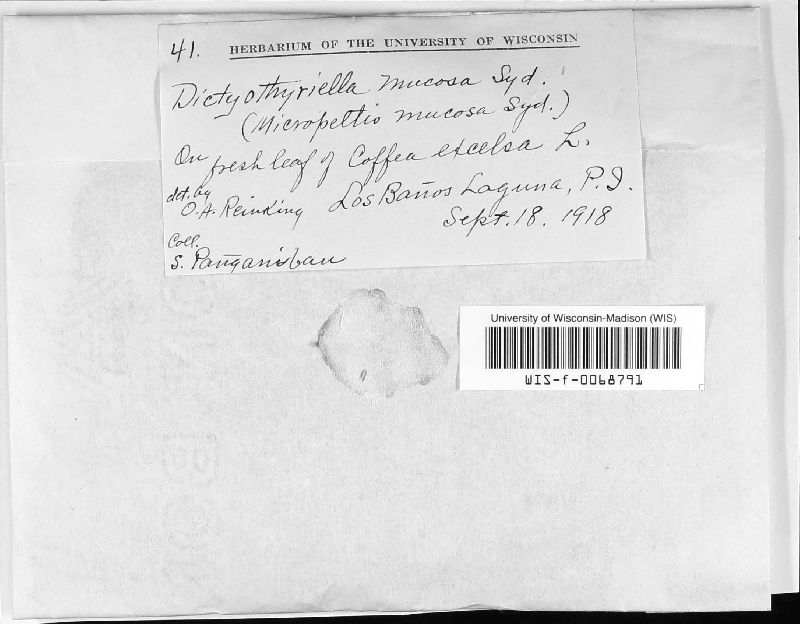 41. HERBARIUM OF THE UNIVERSITY OF WISCONSIN
Dictyothyriella mucosa Syd.
(Micropeltis mucosa Syd.)
On fresh leaf of Coffea excelsa L.
det. by
O. A. Reinking Los Baños Laguna, P. I.
Sept. 18. 1918
Coll.
S. Panganiban
University of Wisconsin-Madison (WIS)
WIS-f-0068791